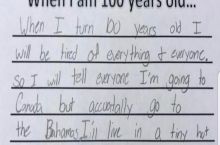 When I am 100 years old...
When I turn 100 years old I
will be tired of everything & everyone.
So I will tell everyone I'm going to
Canada but accidentally go to
the Bahamas. I'll live in a tiny hot